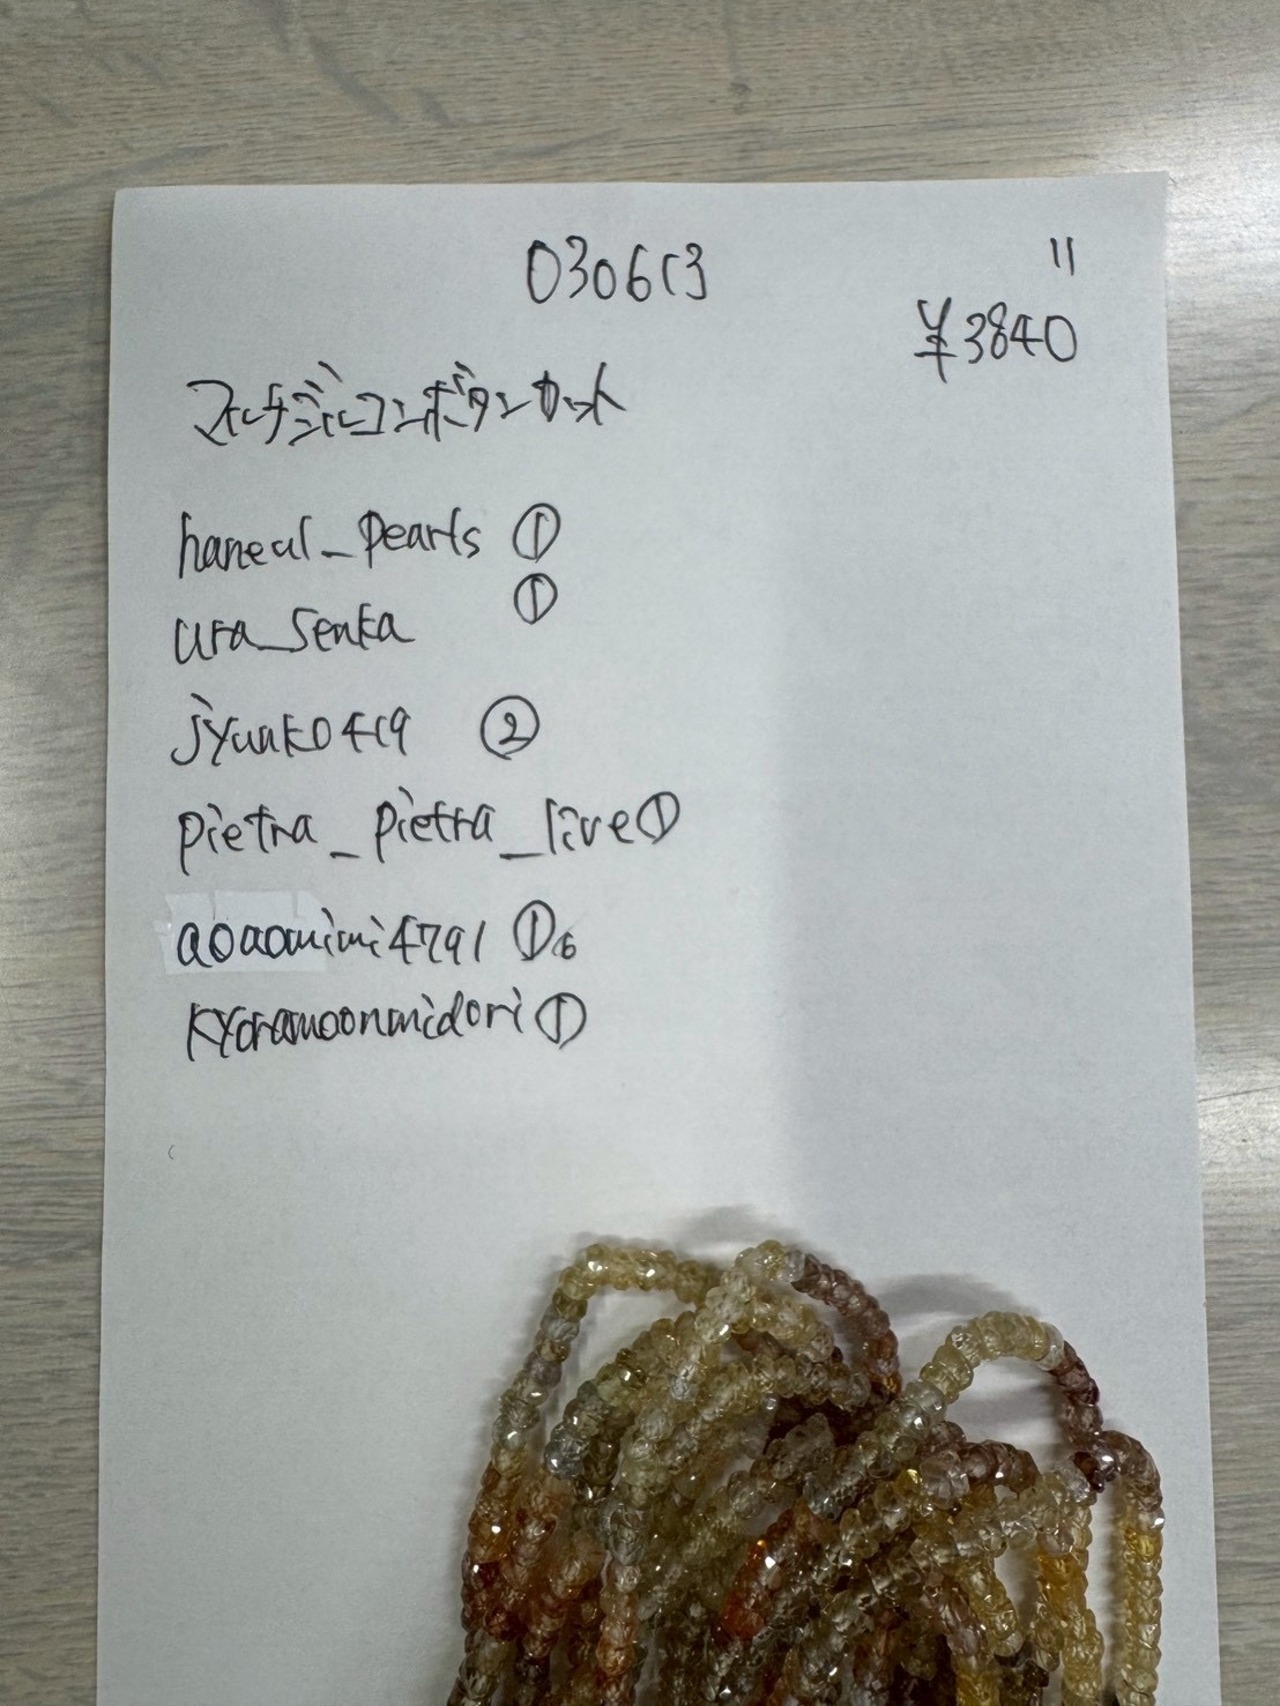 0306(3
11
¥3840
マルチジルコンボタンカット
haneul_pearls ①
ura_senka ①
jyunko419 ②
pietra_pietra_live①
aoaomimi4791 ①6
kyoramoonmidori①